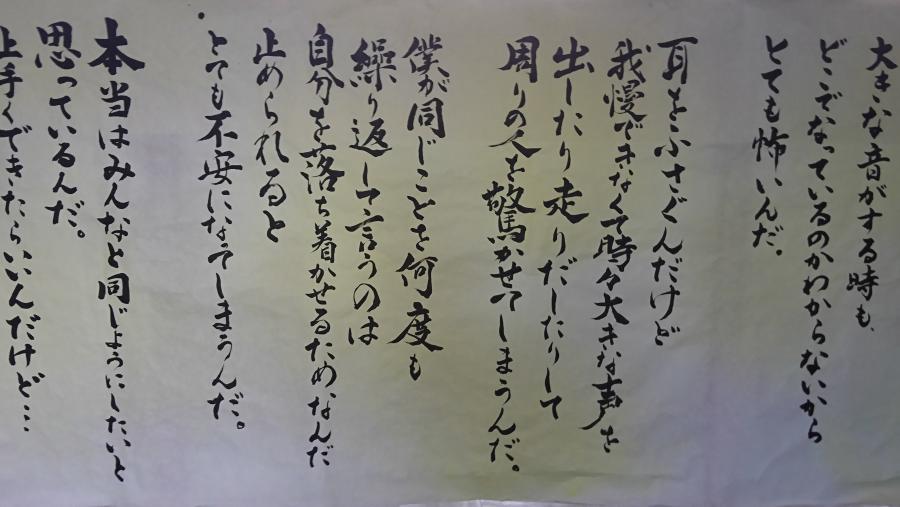 大きな音がする時も、
どこでなっているのかわからないから
とても怖いんだ。
耳をふさぐんだけど
我慢できなくて時々大きな声を
出したり走りだしたりして
周りの人を驚かせてしまうんだ。
僕が同じことを何度も
繰り返して言うのは
自分を落ち着かせるためなんだ
止められると
とても不安になってしまうんだ。
本当はみんなと同じようにしたいと
思っているんだ。
上手くできたらいいんだけど…